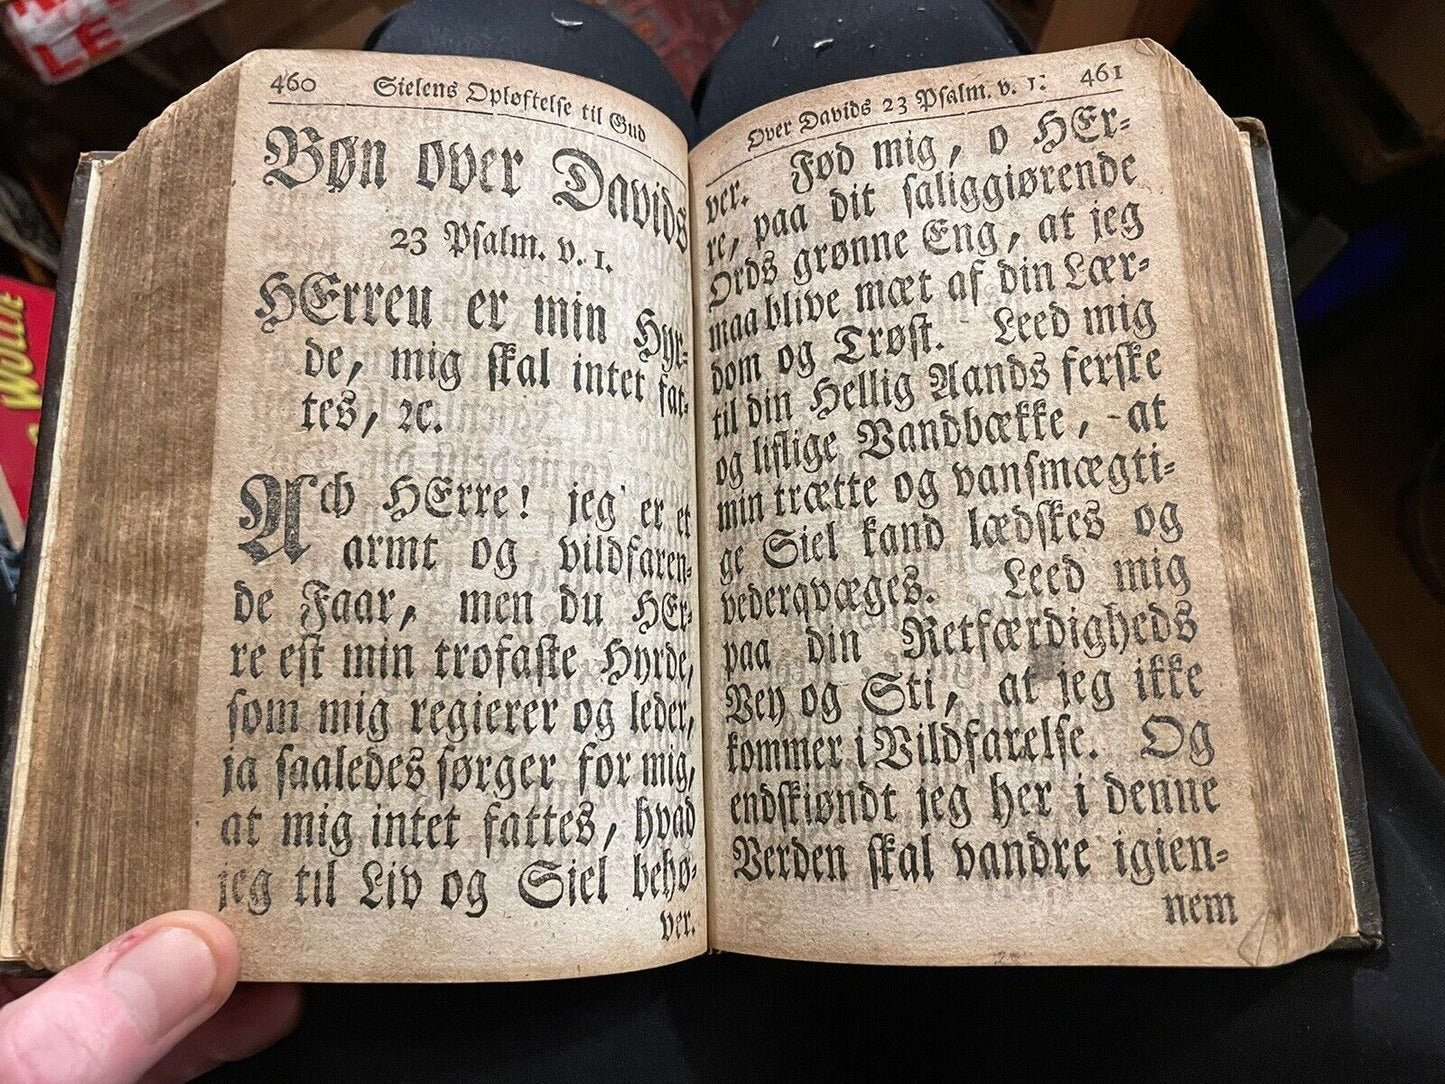 460 Sielens Opløftelse til Gud
Bøn over Davids
23 Psalm. v. 1.
HErren er min Hyr-
de, mig skal intet fat-
tes, ꝛc.
Ach HErre! jeg er et
armt og vildfaren-
de Faar, men du HEr-
re est min trofaste Hyrde,
som mig regierer og leder,
ja saaledes sørger for mig,
at mig intet fattes, hvad
jeg til Liv og Siel behø-
ver.
Over Davids 23 Psalm. v. 1. 461
ver. Fød mig, o HEr-
re, paa dit saliggiørende
Ords grønne Eng, at jeg
maa blive mæt af din Lær-
dom og Trøst. Leed mig
til din Hellig Aands ferske
og liflige Vandbække, at
min trætte og vansmægti-
ge Siel kand lædskes og
vederqvæges. Leed mig
paa din Retfærdigheds
Vey og Sti, at jeg ikke
kommer i Vildfarelse. Og
endskiøndt jeg her i denne
Verden skal vandre igien-
nem
LE
WOLLIE